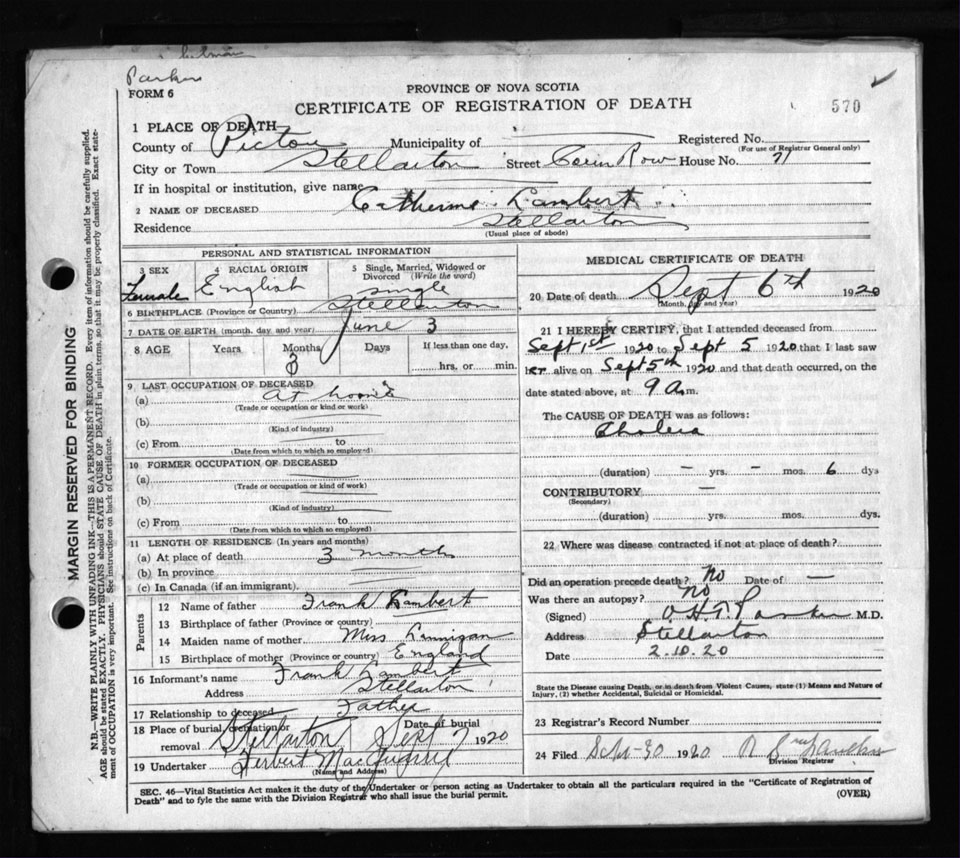 Parker
FORM 6
PROVINCE OF NOVA SCOTIA
CERTIFICATE OF REGISTRATION OF DEATH
570
1 PLACE OF DEATH
County of Pictou Municipality of Registered No.
(For use of Registrar General only)
City or Town Stellarton Street Row House No. 71
If in hospital or institution, give name
2 NAME OF DECEASED Catherine Lambert
Residence Stellarton
(Usual place of abode)
MARGIN RESERVED FOR BINDING
N.B.—WRITE PLAINLY WITH UNFADING INK—THIS IS A PERMANENT RECORD. Every item of information should be carefully supplied.
AGE should be stated EXACTLY. PHYSICIANS should STATE CAUSE OF DEATH in plain terms, so that it may be properly classified. Exact state-
ment of OCCUPATION is very important. See instructions on back of Certificate.
PERSONAL AND STATISTICAL INFORMATION
3 SEX 4 RACIAL ORIGIN 5 Single, Married, Widowed or
Divorced (Write the word)
Female English Single
6 BIRTHPLACE (Province or Country) Stellarton
7 DATE OF BIRTH (month, day and year) June 3
8 AGE Years Months Days If less than one day,
3 hrs. or min.
9 LAST OCCUPATION OF DECEASED
(a) At home
(Trade or occupation or kind of work)
(b)
(Kind of industry)
(c) From to
(Date from which to which so employed)
10 FORMER OCCUPATION OF DECEASED
(a)
(Trade or occupation or kind of work)
(b)
(Kind of industry)
(c) From to
(Date from which to which so employed)
11 LENGTH OF RESIDENCE (In years and months)
(a) At place of death 3 months
(b) In province
(c) In Canada (if an immigrant)
Parents
12 Name of father Frank Lambert
13 Birthplace of father (Province or country)
14 Maiden name of mother Miss
15 Birthplace of mother (Province or country) England
16 Informant's name Frank Lambert
Address Stellarton
17 Relationship to deceased Father
18 Place of burial, cremation or Date of burial
removal Stellarton Sept 7 1920
19 Undertaker Herbert
(Name and Address)
MEDICAL CERTIFICATE OF DEATH
20 Date of death Sept 6th 1920
(Month, day and year)
21 I HEREBY CERTIFY, that I attended deceased from
Sept 1st 1920 to Sept 5 1920 that I last saw
her alive on Sept 5th 1920 and that death occurred, on the
date stated above, at 9 a.m.
The CAUSE OF DEATH was as follows:
Cholera
(duration) — yrs. — mos. 6 dys
CONTRIBUTORY —
(Secondary)
(duration) yrs. mos. dys.
22 Where was disease contracted if not at place of death?
Did an operation precede death? No Date of —
Was there an autopsy? No
(Signed) Parker M.D.
Address Stellarton
Date 2.10.20
State the Disease causing Death, or in death from Violent Causes, state (1) Means and Nature of
Injury, (2) whether Accidental, Suicidal or Homicidal.
23 Registrar's Record Number
24 Filed Sept-30 1920
Division Registrar
SEC. 46—Vital Statistics Act makes it the duty of the Undertaker or person acting as Undertaker to obtain all the particulars required in the "Certificate of Registration of
Death" and to fyle the same with the Division Registrar who shall issue the burial permit. (OVER)